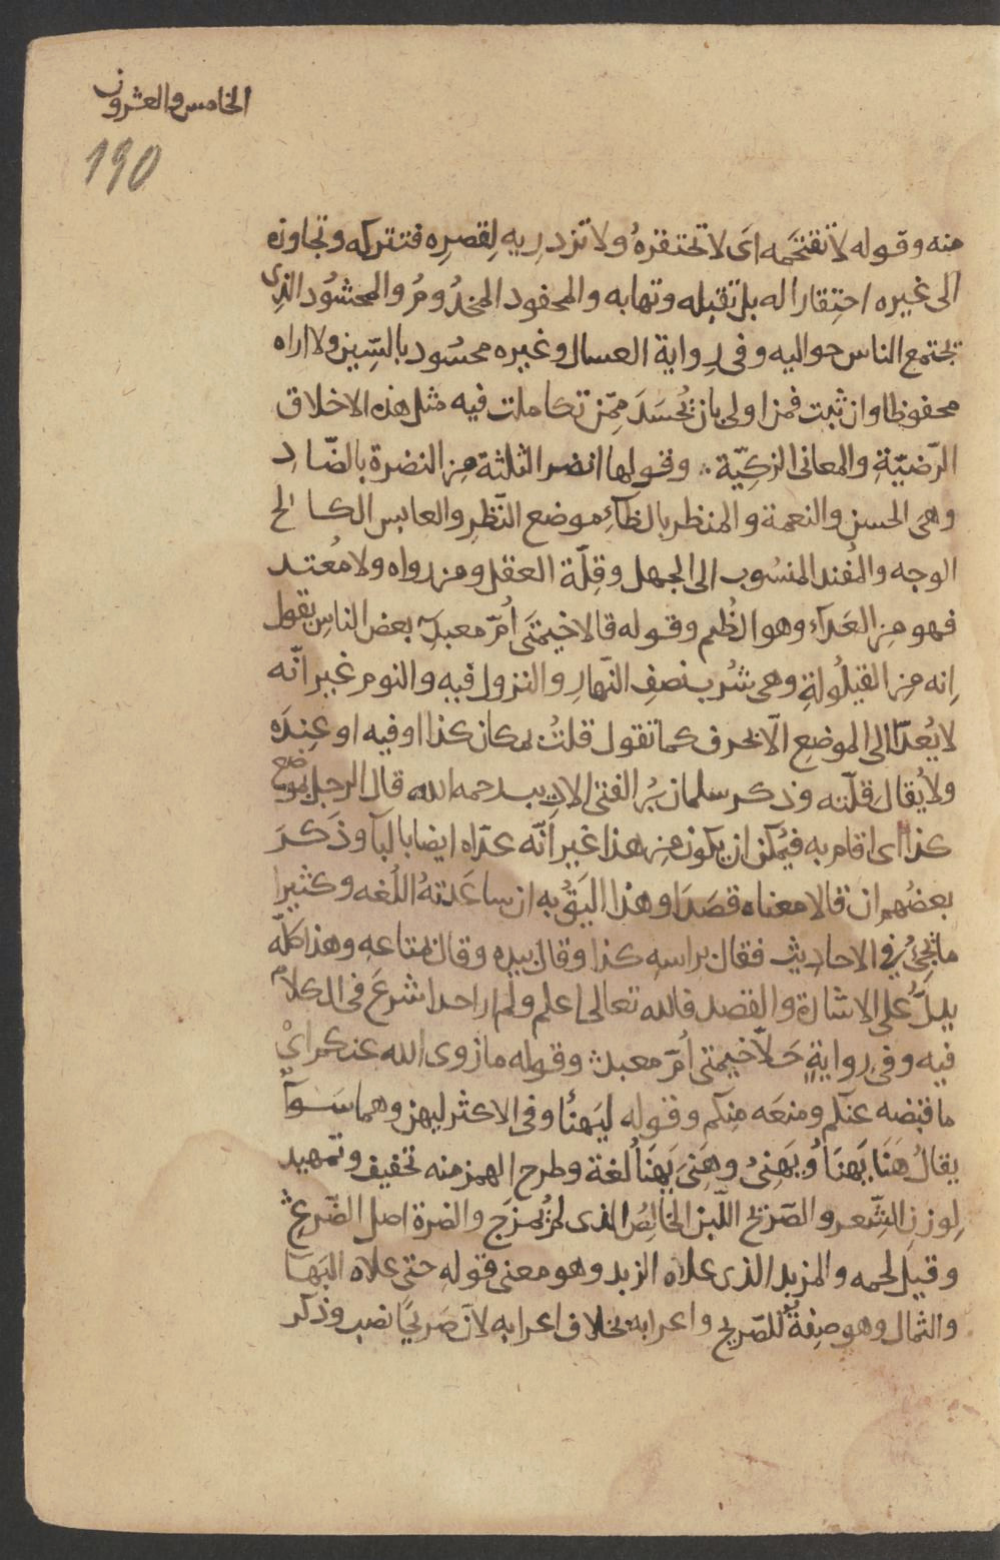 الخامس والعشرون
190
منه وقوله لا تقتحمه اى لا تحتقرهُ ولا تزدريه لِقصرِه فتتركه وتجاوزه
الى غيره احتِقارا له بل تقبله وتهابه والمحفود المخدُومُ والمحشُود الذى
تجتمع الناس حواليه وفى رِواية العسال وغيره محسُود بالسِّين ولا اراه
محفوظا وان ثبت فمن اولى بان يُحسَدَ مِمّن تكاملت فيه مثل هذه الاخلاق
الرّضيّةِ والمعانى الزكِيّة وقولها انضر الثلثة مِن النضرة بالضّادِ
وهى الحسن والنعمة والمنظر بالظآءِ موضع النّظرِ والعابس الكالح
الوجه والمُفند المنسُوب الى الجهل وقِلّة العقل ومن رواه ولا مُعتد
فهو مِن العَدآء وهو الظُلم وقوله قالا خيمتَى اُمّ معبدٍ بعض الناسِ يقول
اِنه مِن القيلُولةِ وهى شُرب نصفِ النّهارِ والنزول فيه والنوم غير انّه
لا يُعدّا الى الموضعِ الّا بحرف كما تقول قلتُ بمكان كذا او فيه او عِندَه
ولا يُقال قلتَه وذكر سلمان بن الفتى الاديب رحمه الله قال الرجل بموضع
كذا اى اقام به فيُمكن ان يكون مِن هذا غير اَنّه عدّاه ايضا بالبآ وذَكرَ
بعضُهم ان قالا معناه قصَدَا وهذا اليَقُ به ان ساعَدتهُ اللُغه وكثيرا
ما يجِئُ في الاحاديث فقال براسِه كذا وقال بيده وقال بمتاعه وهذا كلّه
يدلُّ على الاشارة والقصد فالله تعالى اعلم ولم ار احدا شرعَ فى الكلام
فيه وفى رِوايةٍ حَلّا خيمتى اُمّ معبد وقوله ما زوى الله عنكم اىْ
ما قبضه عنكم ومنعَه مِنكم وقوله ليَهنأ وفى الاكثر ليهن وهما سَوآءٌ
يقالُ هَنَا يَهنَأُ ويَهنِئُ وهَنِئَ يَهنَأُ لغة وطرح الهمز منه تخفيف وتمهيد
لِوزنِ الشِّعر والصّريح اللّبن الخالِصُ الذى لم يُمزَج والضرة اصل الضّرعِ
وقيل لحمه والمزبد الذى علاه الزبد وهو معنى قوله حتى علاه البَهَا
والثمال وهو صِفةٌ للصّريح واعرابه بخلاف اعرابه لان صَريحًا نصب وذكر